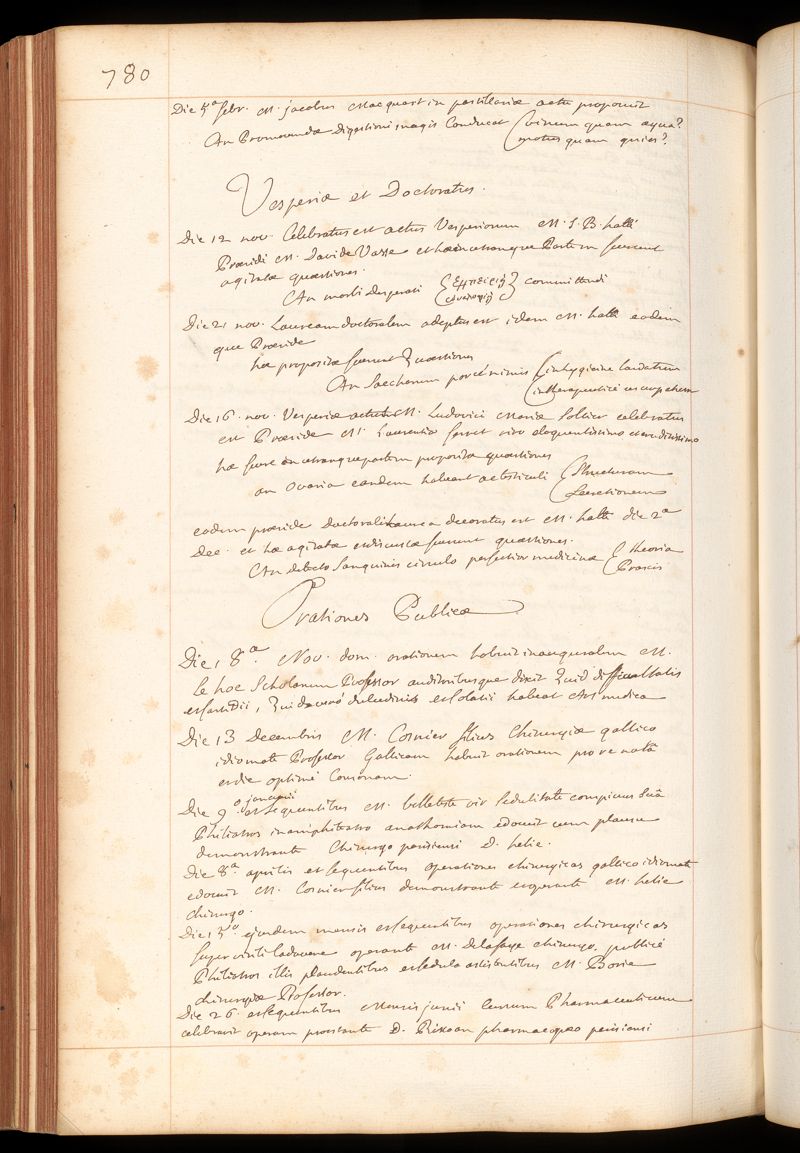 780
Die 5a febr. M. jacobus Macquart in pastillariæ actu proponit
An Promovendæ digestioni magis Conducat { vinum quam aqua?
motus quam quies?
Vesperiæ et Doctoratus.
Die 12 nov. Celebratus est actus Vesperiarum M. J. B. hatté
Præsidi M. Davide Vasse et hæ in utramque Partem fuerunt
agitatæ quæstiones.
An morbi desperati { committendi
Die 21 nov. Lauream doctoralem adeptus est idem M. hatté eodem
que Præside
hæ propositæ fuerunt Quæstiones
An Saccharum per se minus { in hygieine laudatum
in therapeutice usurpatum
Die 16. nov. Vesperiæ M. Ludovici Mariæ Pollier celebratus
est Præside M. Laurentio ferret viro eloquentissimo et eruditissimo
hæ fuere in utramque partem propositæ quæstiones
an Ovaria eandem habeant ac testiculi { Structuram
Secretionem
eodem præside doctorali Laurea decoratus est M. hatté die 2a
Dec. et hæ agitatæ et discussæ fuerunt quæstiones.
An detecto Sanguinis circulo perfectior medicinæ { theoria
Praxis
Orationes Publicæ
Die 18a. Nov. dom. orationem habuit inauguralem M.
le hoc Scholarum Professor auditoribusque dixit Quid difficultatis
et fastidii, Quid a vero dulcedinis et solatii habeat Ars medica
Die 13 Decembris M. Cosnier filius Chirurgiæ gallico
idiomate Professor Gallicam habuit orationem pro re nata
et die optime Consonam.
Die 9o januarii et sequentibus M. bellebste vir sedulitate conspicuus Suâ
Philiatros in amphiteatro anathomiam edocuit cum plausu
demonstrante Chirurgo parisiensi D. helie.
Die 8a. aprilis et sequentibus operationes chirurgicas gallico idiomate
edocuit M. Cosnier filius demonstrante et operante M. helie
chirurgo.
Die 15o. ejusdem mensis et sequentibus operationes chirurgicas
super virili cadavere operante M. Delafaye chirurgo, publicè
Philiatros illis plaudentibus et sedula astantibus M. Borie
chirurgiæ Professor.
Die 26. et sequentibus Mensis junii Cursum Pharmaceuticum
celebravit operam præstante D. Rixoan pharmacopæo parisiensi